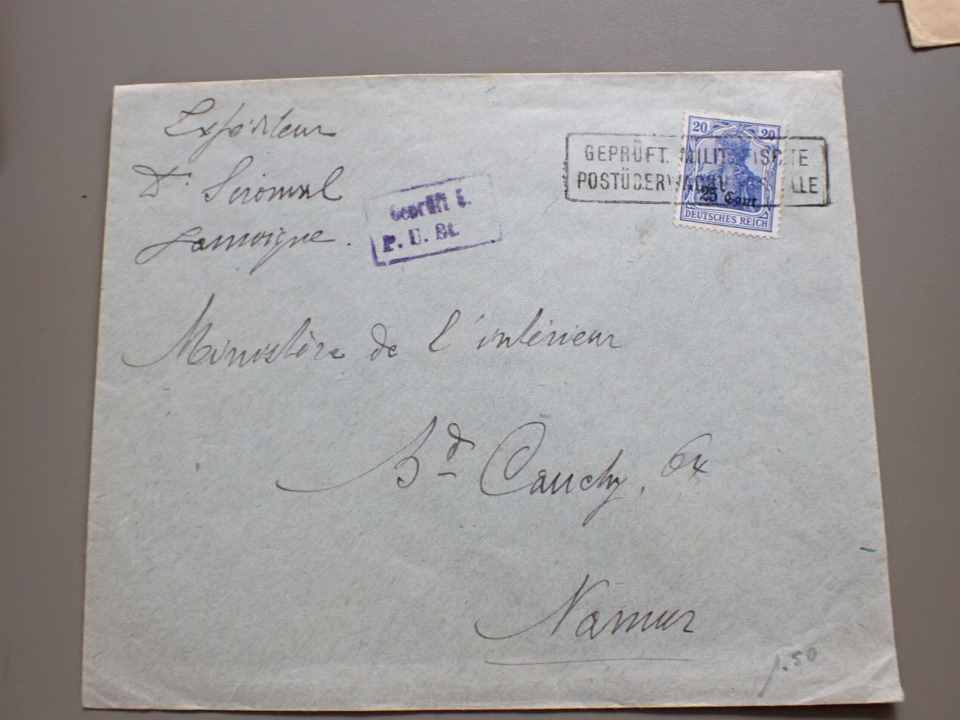 Expéditeur
Dr
Lamoigne.
Geprüft
P. U. St.
GEPRÜFT. MILITÄRISCHE
POSTÜBERWACHUNGSSTELLE
20 20
25 Cent.
DEUTSCHES REICH
Ministère de l'intérieur
Bd Cauchy, 64
Namur
1.50